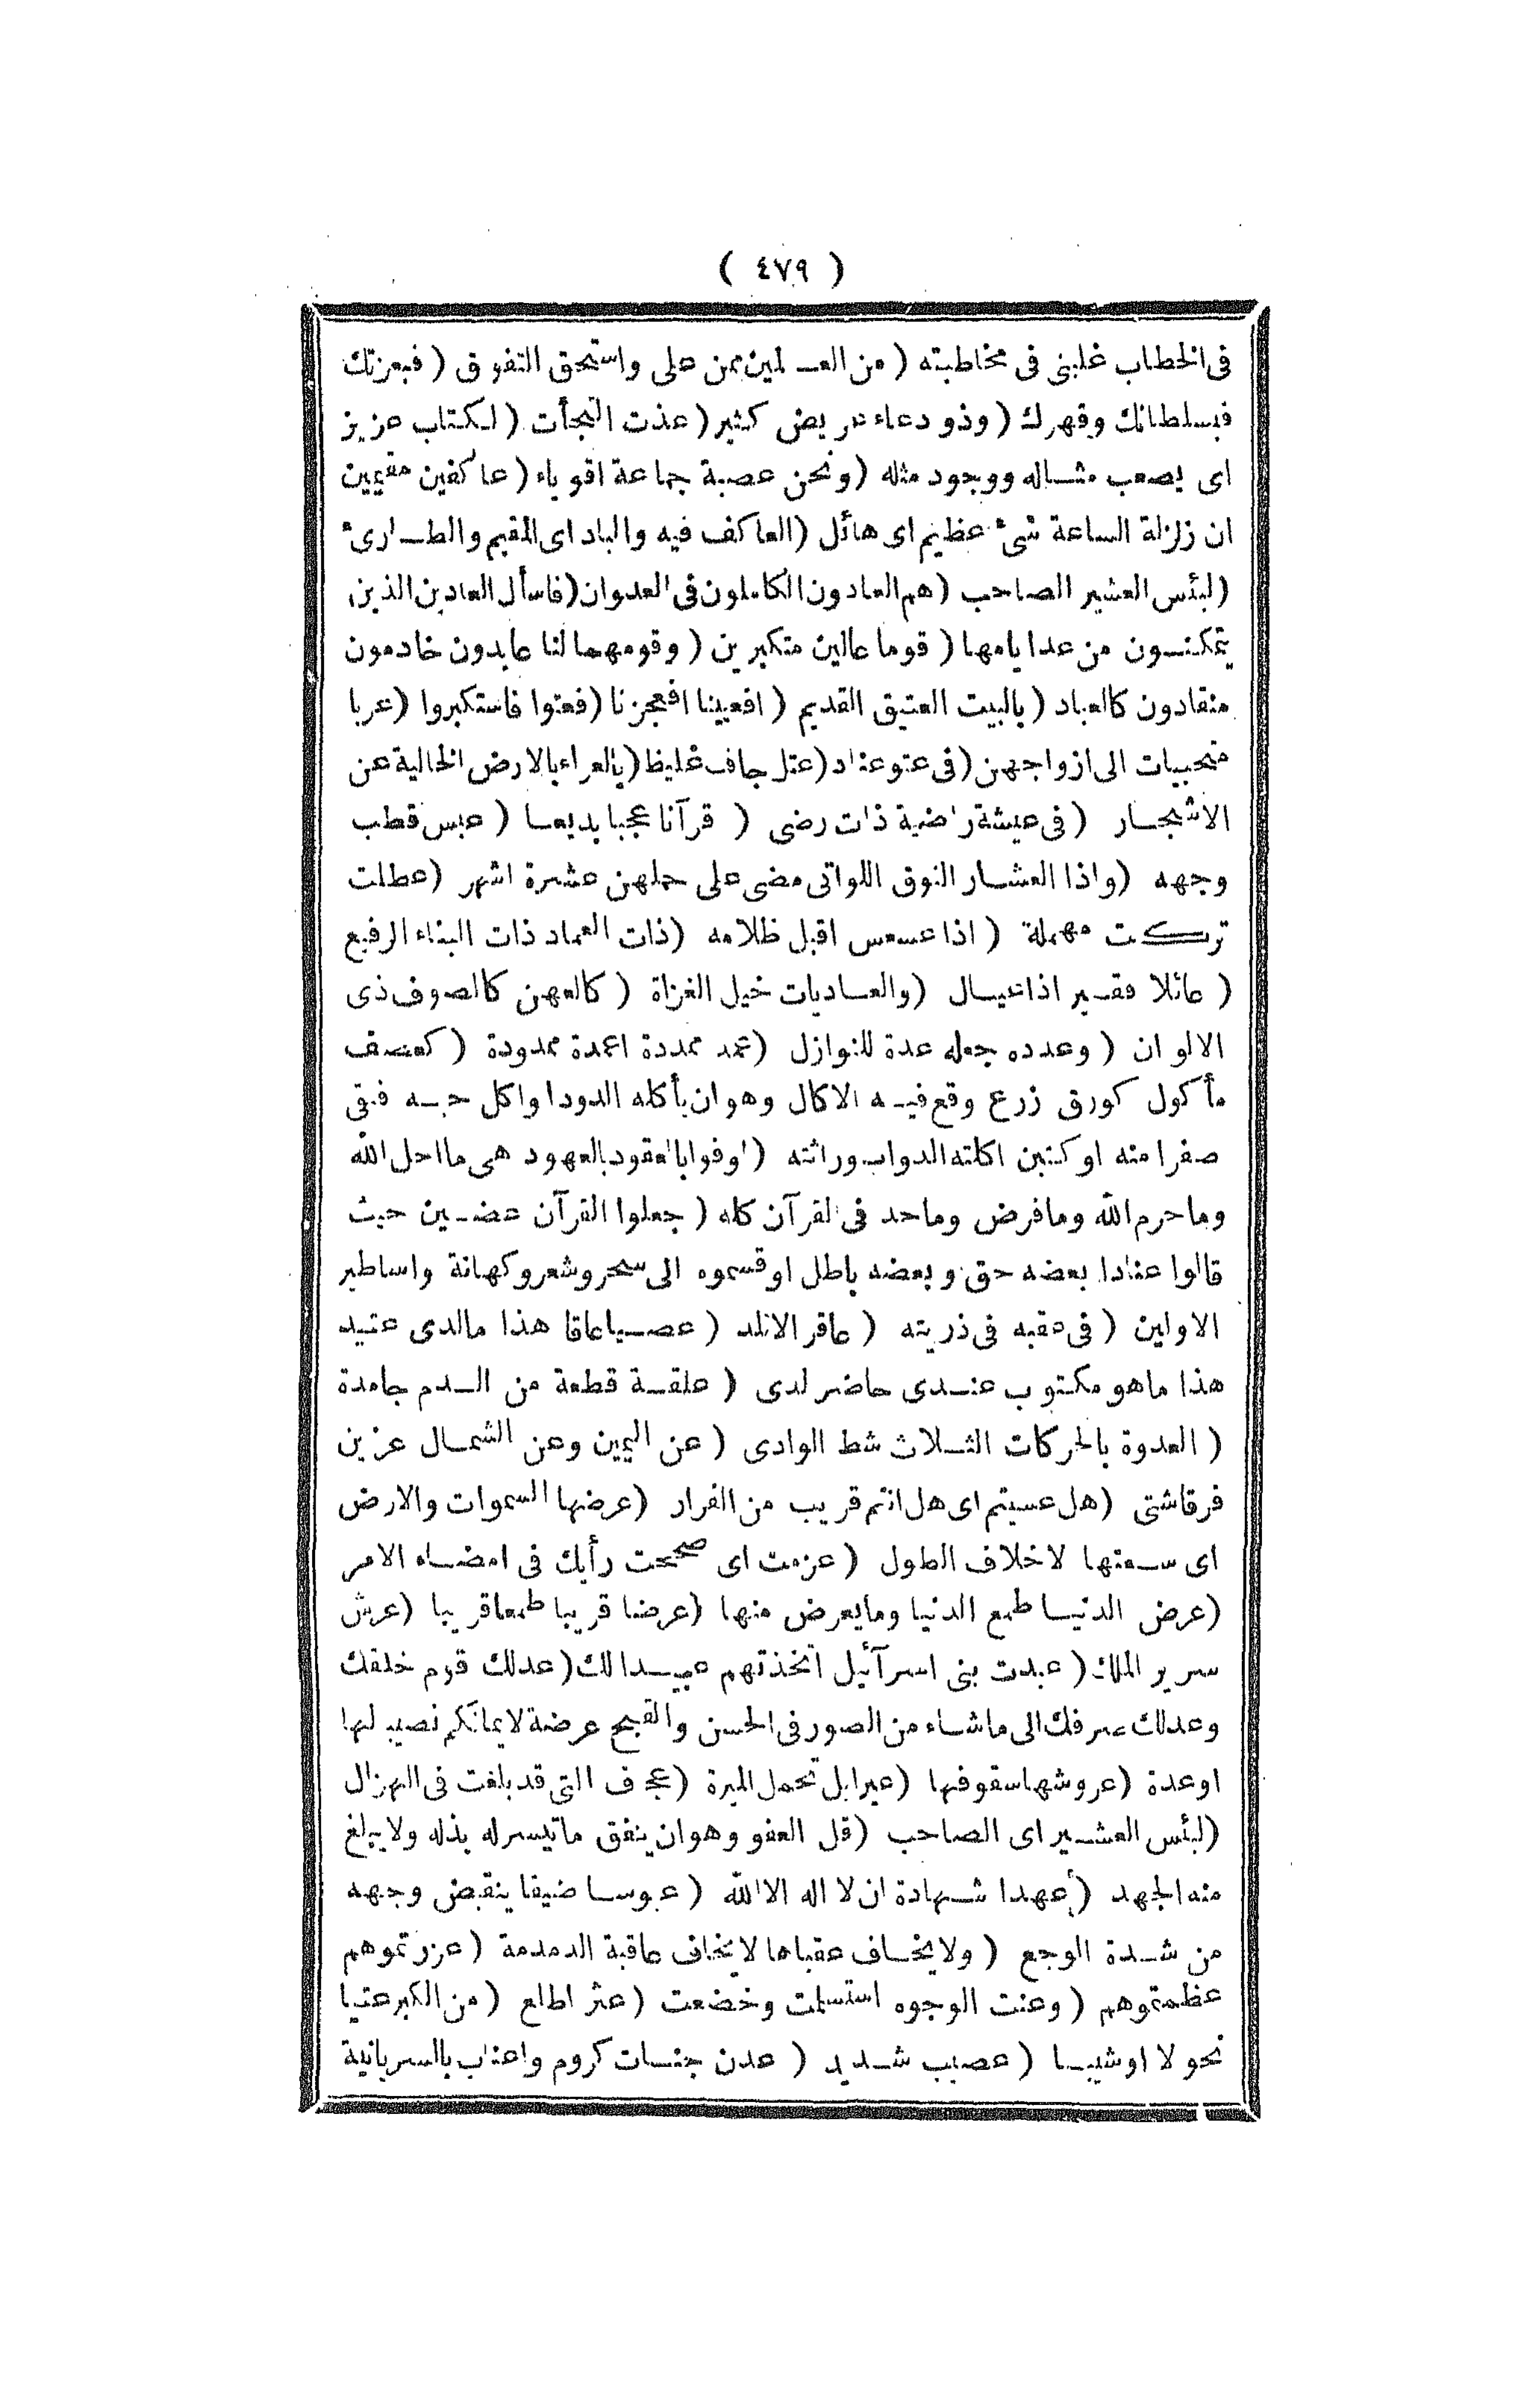 ( ٤٧٩ )
فى الخطاب غلبنى فى مخاطبته ( من العــالمين ممن على واستحق التفوق ( فبعزتك
فبسلطانك وقهرك ( وذو دعاء عريض كثير ( عذت التجأت ( لكتاب عزيز
اى يصعب مثــاله ووجود مثله ( ونحن عصبة جماعة اقوياء ( عاكفين مقيمين
ان زلزلة الساعة شىء عظيم اى هائل ( العاكف فيه والباد اى المقيم والطــارىء
( لبئس العشير الصاحب ( هم العادون الكاملون فى العدوان ( فاسأل العادين الذين
يتمكنــون من عد ايامها ( قوما عالين متكبرين ( وقومهما لنا عابدون خادمون
منقادون كالعباد ( بالبيت العتيق القديم ( افعيينا افعجزنا ( فعتوا فاستكبروا ( عربا
متحببات الى ازواجهن ( فى عتو عناد ( عتل جاف غليظ ( بالعراء بالارض الخالية عن
الاشجــار ( فى عيشة راضية ذات رضى ( قرآنا عجبا بديعــا ( عبس قطب
وجهه ( واذا العشــار النوق اللواتى مضى على حملهن عشرة اشهر ( عطلت
تركــت مهملة ( اذا عسعس اقبل ظلامه ( ذات العماد ذات البناء الرفيع
( عائلا فقــير اذا عيــال ( والعــاديات خيل الغزاة ( كالعهن كالصوف ذى
الالوان ( وعدده جعله عدة للنوازل ( عمد ممددة اعمدة ممدودة ( كعصف
مأكول كورق زرع وقع فيــه الاكال وهو ان يأكله الدود او اكل حبــه فبقى
صفرا منه او كتبن اكلته الدواب وراثته ( اوفوا بالعقود بالعهود هى ما احل الله
وما حرم الله وما فرض وما حد فى القرآن كله ( جعلوا القرآن عضــين حيث
قالوا عنادا بعضه حق وبعضه باطل او قسموه الى سحر وشعر وكهانة واساطير
الاولين ( فى عقبه فى ذريته ( عاقر الاتلد ( عصــيا عاقا هذا مالدى عتيد
هذا ما هو مكتوب عنــدى حاضر لدى ( علقــة قطعة من الــدم جامدة
( العدوة بالحركات الثــلاث شط الوادى ( عن اليمين وعن الشمــال عزين
فرقا شتى ( هل عسيتم اى هل انتم قريب من الفرار ( عرضها السموات والارض
اى ســعتها لا خلاف الطول ( عزمت اى صححت رأيك فى امضــاء الامر
( عرض الدنيــا طمع الدنيا وما يعرض منها ( عرضا قريبا طمعا قريبا ( عرش
سرير الملك ( عبدت بنى اسرآئيل اتخذتهم عبيــدا لك ( عدلك قوم خلقك
وعدلك صرفك الى ما شــاء من الصور فى الحسن والقبح عرضة لايمانكم نصيب لها
اوعدة ( عروشها سقوفها ( عير ابل تحمل الميرة ( عجاف التى قد بلغت فى الهزال
( لبئس العشــير اى الصاحب ( قل العفو وهو ان ينفق ما تيسر له بذله ولا يبلغ
منه الجهد ( أعهدا شــهادة ان لا اله الا الله ( عبوســا ضيقا ينقبض وجهه
من شــدة الوجع ( ولا يخــاف عقباها لا يخاف عاقبة الدمدمة ( عزرتموهم
عظمتموهم ( وعنت الوجوه استسلمت وخضعت ( عثر اطلع ( من الكبر عتيا
نحولا اوشيبــا ( عصيب شــديد ( عدن جنــات كروم واعناب بالسريانية